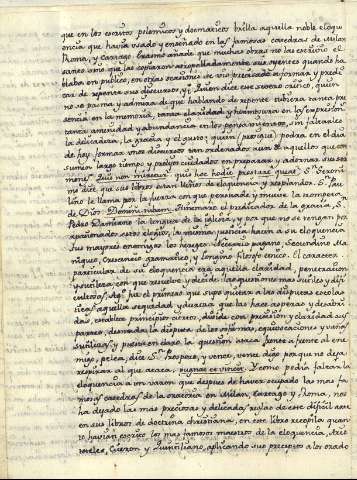 que en los escritos polemicos y dogmaticos brilla aquella noble eloq
uencia que havia usado y enseñado en las famosas catedras de Milan
Roma, y Cartago. Erasmo añade que muchas obras no las escribio el
santo sino que las copiaron arrogadamente sus oyentes quando ha
blaba en publico, en otras ocasiones se vio precisado a formar y predi
car de repente sus discursos. ¿Quien dice este severo critico, quien
no se pasma y admira de que hablando de repente tubiera tanta pre
sencia en la memoria, tanta claridad y hermosura en la expresión
tanta amenidad y abundancia en los pensamientos, sin faltarle
la delicadeza, la gracia y el gusto? quien (prosigue) podra en el dia
de hoy formar unos discursos tan ordenados aun de aquellos que con
sumen largo tiempo y prolijos cuidados en preparar y adornar sus ser
mones? Quis non miretur quis hoc hodie prestare queat. Sn Geroni
mo dice que sus libros estan llenos de eloquencia y resplandor. Sn Pau
lino le llama por la fuerza con que persuade, y mueve la trompeta
de Dios Domini tubam. Pinemaro el predicador de la gracia, Sn
Pedro Damiano la lengua de la iglesia, y por que no se tengan por
apasionados estos elogios, la misma justicia hacen a su eloquencia
sus mayores enemigos los hereges. Nectario pagano, Secundino Ma
niqueo, Cresconio gramatico, y Longino filosofo etnico. El caracter
particular de su eloquencia era aquella claridad, penetracion
y sutileza con que resuelve y decide las questiones mas sutiles y difi
cultosas. Agn fue el primero que supo quitar a las disputas escolas
ticas aquella sequedad y dureza que las hace asperas y desabri
das, establece principios ciertos, divide con precision y claridad sus
partes, desnuda la disputa de los sofismas, equivocaciones y vanas
sutilezas, y puesta en claro la question ataca frente a frente al ene
migo, pelea, dice Sn Prospero, y vence, vence digo por que no deja
respirar al que ataca, pugnat et vincit. Y como podia faltar la
eloquencia a un varon que despues de haver ocupado las mas fa
mosas catedras de la oratoria en Milan, Cartago y Roma, nos
ha dejado las mas preciosas y delicadas reglas de este dificil arte
en sus libros de doctrina christiana, en este libro recopila quan
to havian escrito los mas famosos maestros de la eloquencia, Aris
toteles, Ciceron y Quintiliano, aplicando sus preceptos a los orado